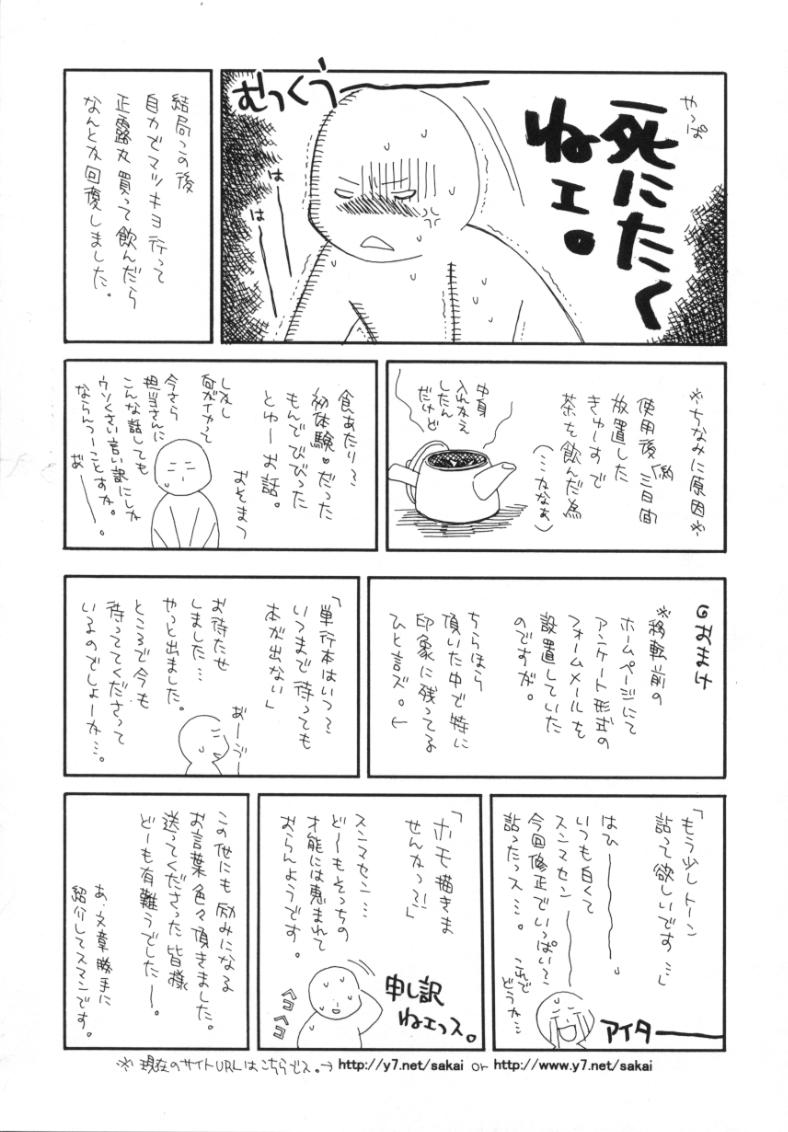 やっぱ
死にたく
ねェ。
むっくうー
はー
はー
結局この後
自力でマツキヨ行って
正露丸買って飲んだら
なんとか回復しました。
※ちなみに原因※
使用後(約三日間)
放置した
きゅーすで
茶を飲んだ為
中身
入れかえ
したん
だけど
食あたり〜
初体験♥だった
もんでびびった
とゆーお話。
おそまつ
しかし
何がイカって
今さら
担当さんに
こんな話しても
ウソくさい言い訳にしか
ならんつーことすか。
おーー。
◎おまけ
※移転前の
ホームページにて
アンケート形式の
フォームメールを
設置していた
のですが。
ちらほら
頂いた中で特に
印象に残ってる
ひと言ズ。↓
「単行本はいつ〜
いつまで待っても
本が出ない」
お待たせ
しました…
やっと出ました。
ところで今も
待っててくださって
いるのでしょーか…。
「もう少しトーン
貼って欲しいです…」
はひーーー。
いつも白くて
スンマセンーー
今回修正でいっぱい〜
貼ったっス…。
これで
どうか…
アイターー
「ホモ描きま
せんかっ?!」
スンマセン…
ど〜もそっちの
才能には恵まれて
おらんようです。
ペコペコ
申し訳
ねェっス。
この他にも励みになる
お言葉色々頂きました。
送ってくださった皆様
どーも有難うでしたー。
あ、文章勝手に
紹介してスマンです。
※現在のサイトURLはこちらでス。→ http://y7.net/sakai or http://www.y7.net/sakai